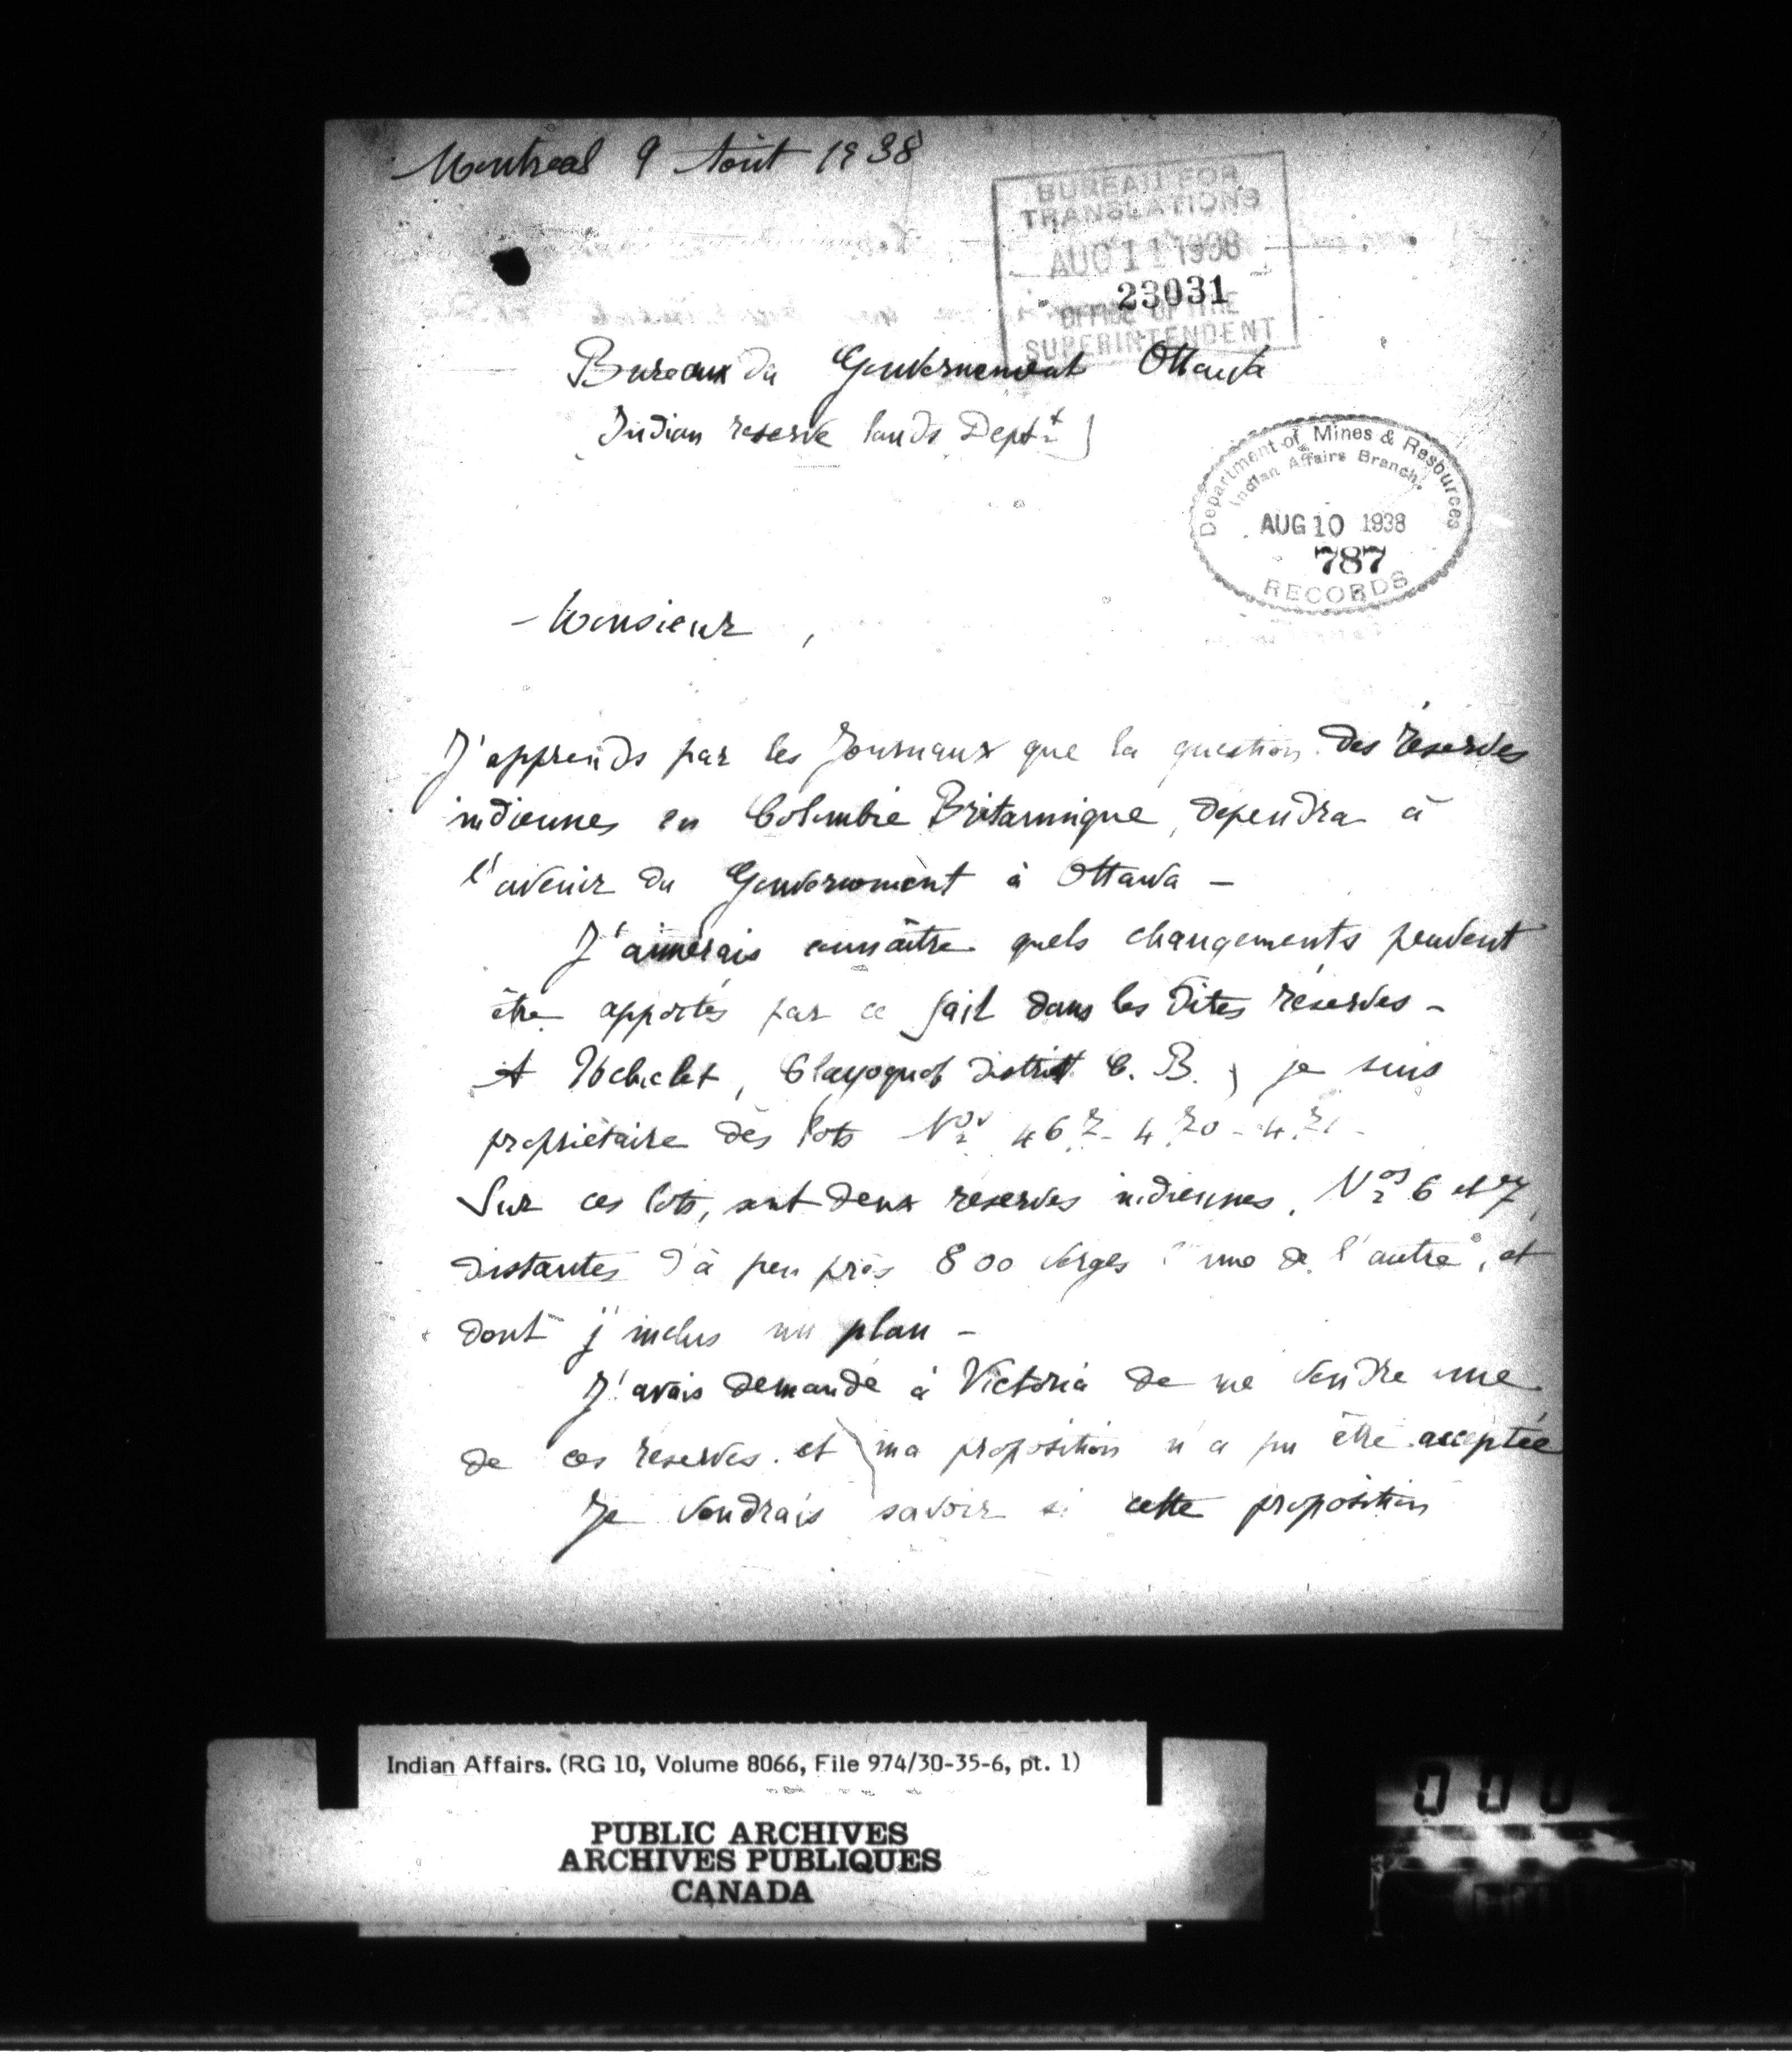 Montreal 9 Août 1938
BUREAU FOR
TRANSLATIONS
AUG 11 1938
23031
OFFICE OF THE
SUPERINTENDENT
Bureaux du Gouvernement Ottawa
(Indian reserve lands Dept)
Department of Mines & Resources
Indian Affairs Branch
AUG 10 1938
787
RECORDS
Monsieur,
J'apprends par les Journaux que la question des réserves
indiennes en Colombie Britannique, dependra à
l'avenir du Gouvernement à Ottawa –
J'aimerais connaître quels changements peuvent
être apportés par ce fait dans les dites réserves –
A Ucluelet, Clayoquot district C. B., je suis
propriétaire des lots Nos 467 - 470 - 471 -
Sur ces lots, sont deux réserves indiennes, Nos 6 et 7,
distantes d'à peu près 800 verges l'une de l'autre, et
dont j'inclus un plan –
J'avais demandé à Victoria de me vendre une
de ces réserves. et ma proposition n'a pu être acceptée
Je voudrais savoir si cette proposition
Indian Affairs. (RG 10, Volume 8066, File 974/30-35-6, pt. 1)
PUBLIC ARCHIVES
ARCHIVES PUBLIQUES
CANADA
000